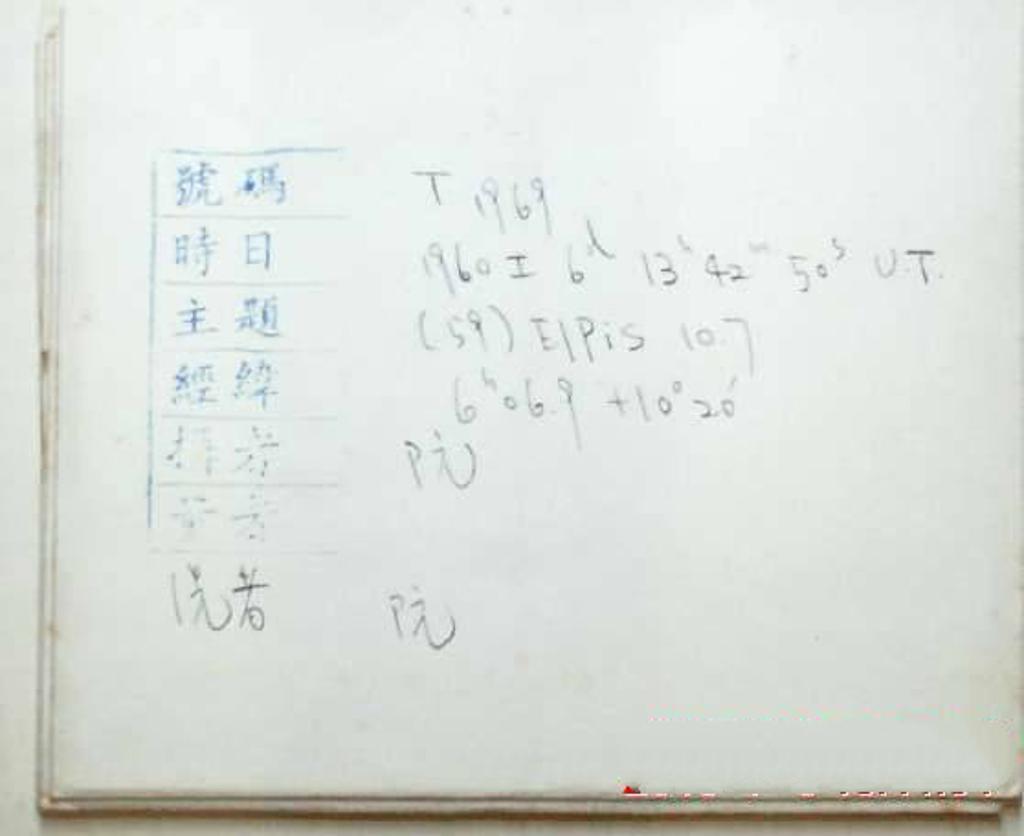 號碼 T 1969
時日 1960 I 6d 13h 42m 50s U.T.
主題 (59) Elpis 10.7
經緯 6h 06.9 +10° 20'
者 阮
者 阮